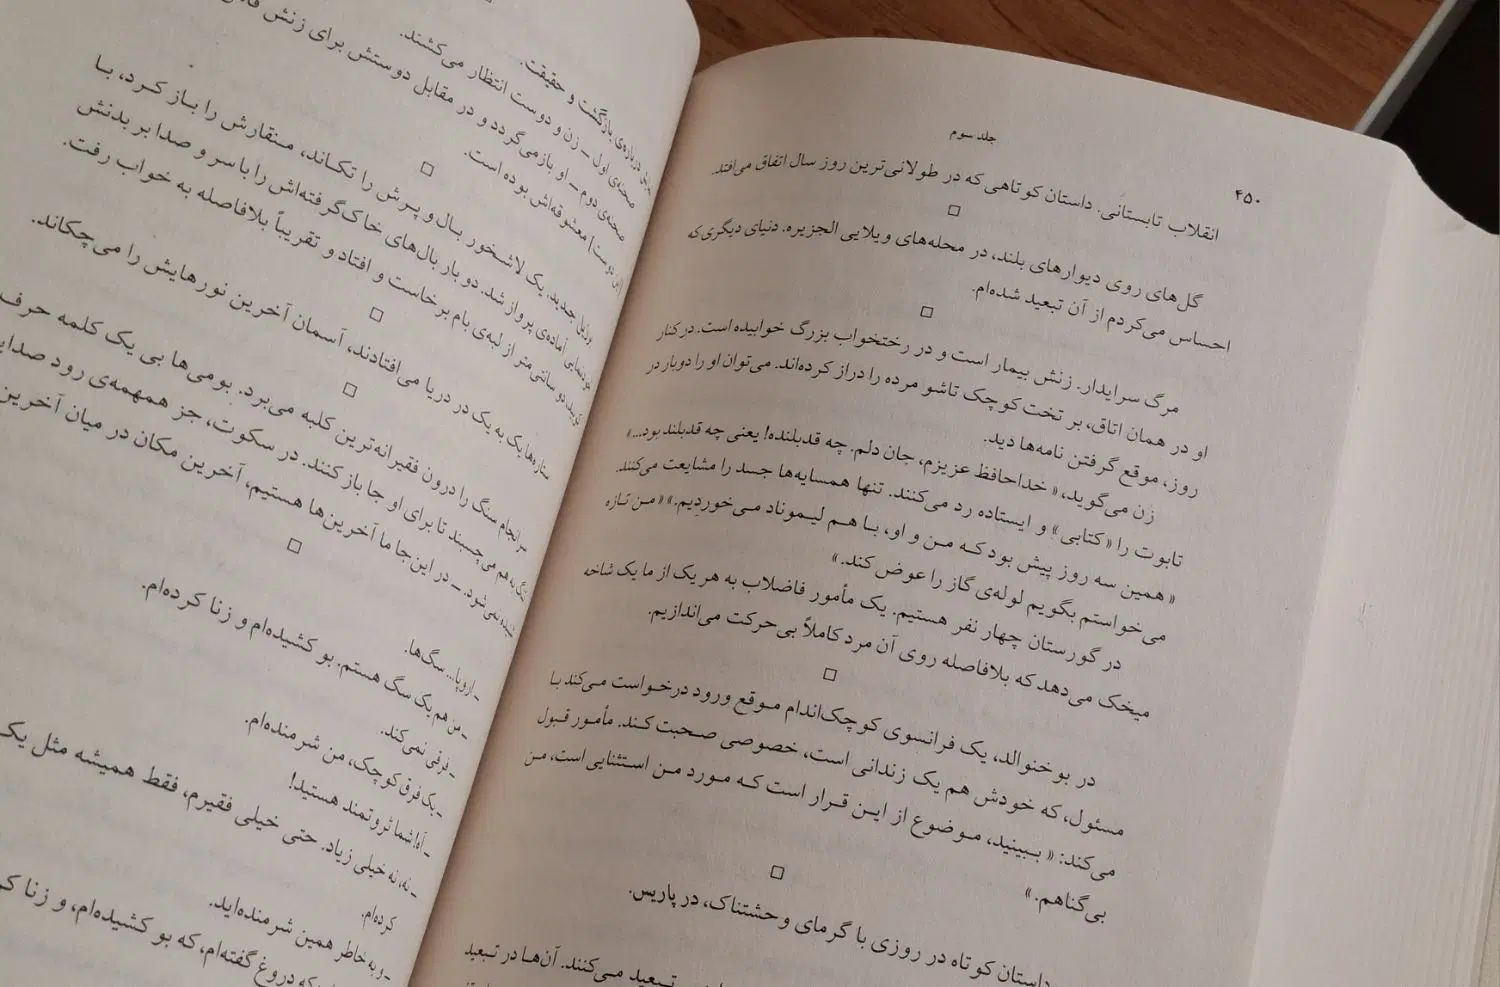 ۴۵۰
جلد سوم
انقلاب تابستانی. داستان کوتاهی که در طولانی‌ترین روز سال اتفاق می‌افتد.
گل‌های روی دیوارهای بلند، در محله‌های ویلایی الجزیره. دنیای دیگری که
احساس می‌کردم از آن تبعید شده‌ام.
مرگ سرایدار. زنش بیمار است و در رختخواب بزرگ خوابیده است. در کنار
او در همان اتاق، بر تخت کوچک تاشو مرده را دراز کرده‌اند. می‌توان او را دوبار در
روز، موقع گرفتن نامه‌ها دید.
زن می‌گوید، « خداحافظ عزیزم، جان دلم. چه قدبلنده! یعنی چه قدبلند بود...»
تابوت را « کتابی » و ایستاده رد می‌کنند. تنها همسایه‌ها جسد را مشایعت می‌کنند.
« همین سه روز پیش بود که من و او، با هم لیموناد می‌خوردیم.» « من تازه
می‌خواستم بگویم لوله‌ی گاز را عوض کند. »
در گورستان چهار نفر هستیم. یک مأمور فاضلاب به هر یک از ما یک شاخه
میخک می‌دهد که بلافاصله روی آن مرد کاملاً بی‌حرکت می‌اندازیم.
در بوخنوالد، یک فرانسوی کوچک‌اندام موقع ورود درخواست می‌کند با
مسئول، که خودش هم یک زندانی است، خصوصی صحبت کند. مأمور قبول
می‌کند: « ببینید، موضوع از این قرار است که مورد من استثنایی است، من
بی‌گناهم. »
داستان کوتاه در روزی با گرمای وحشتناک، در پاریس.
تبعید می‌کنند. آن‌ها در تبعید
درباره‌ی بازگشت و حقیقت.
صحنه‌ی اول ـ زن و دوست انتظار می‌کشند.
صحنه‌ی دوم ـ او بازمی‌گردد و در مقابل دوستش برای زنش
دوست] معشوقه‌اش بوده است.
جدید. یک لاشخور بال و پرش را تکاند، منقارش را باز کرد، با
آماده‌ی پرواز شد. دو بار بال‌های خاک‌گرفته‌اش را با سر و صدا بر بدنش
کوبید، دو سانتی‌متر از لبه‌ی بام برخاست و افتاد و تقریباً بلافاصله به خواب رفت.
ستاره‌ها یک به یک در دریا می‌افتادند، آسمان آخرین نورهایش را می‌چکاند.
سرانجام سنگ را درون فقیرانه‌ترین کلبه می‌برد. بومی‌ها بی یک کلمه حرف
تنگ به هم می‌چسبند تا برای او جا باز کنند. در سکوت، جز همهمه‌ی رود
شنیده نمی‌شود. ـ در این جا ما آخرین‌ها هستیم، آخرین مکان در میان آخرین
ـ اروپا... سگ‌ها.
ـ من هم یک سگ هستم. بو کشیده‌ام و زنا کرده‌ام.
ـ فرقی نمی‌کند.
ـ یک فرق کوچک، من شرمنده‌ام.
ـ آه! شما ثروتمند هستید!
ـ نه، نه خیلی زیاد. حتی خیلی فقیرم، فقط همیشه مثل یک
کرده‌ام.
ـ و به خاطر همین شرمنده‌اید.
که دروغ گفته‌ام، که بو کشیده‌ام، و زنا